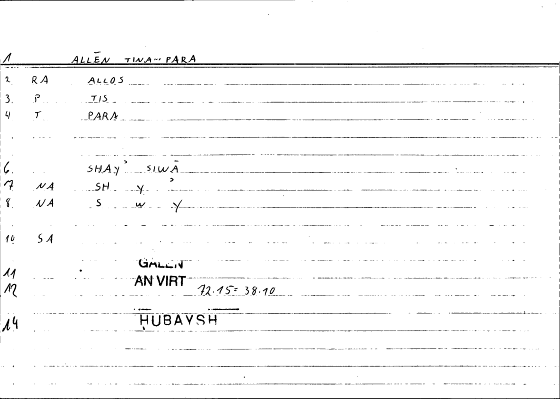 1 ALLĒN TINA-PARA
2 RA ALLOS
3. P TIS
4 T PARA
6. SHAYʾ SIWĀ
7 NA SH Y ʾ
8 NA S W Y
10 SA
11 GALEN
12 AN VIRT 72.15 = 38.10
14 HUBAYSH